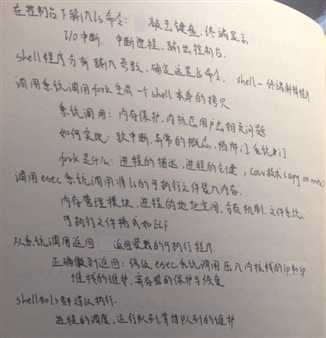 在控制台下输入ls命令: 敲击键盘,终端显示
I/O中断,中断进程,输出控制台.
shell程序分析输入参数,确定这是ls命令, shell-终端解释程序
调用系统调用fork生成一个shell本身的拷贝
系统调用:内存保护,内核区用户区相关问题
如何实现:软中断,异常的概念,陷阱门系统门
fork是什么:进程的描述,进程的创建,COW技术(copy on write)
调用exec系统调用将ls的可执行文件装入内存.
内存管理模块,进程的地址空间,分页机制,文件系统.
可执行文件格式如ELF
从系统调用返回 返回要装的可执行程序.
正确做到返回:保证exec系统调用压入内核栈的ip和sp
堆栈的维护,寄存器的保护与恢复
shell和ls都得以执行.
进程的调度,运行队列与等待队列的维护